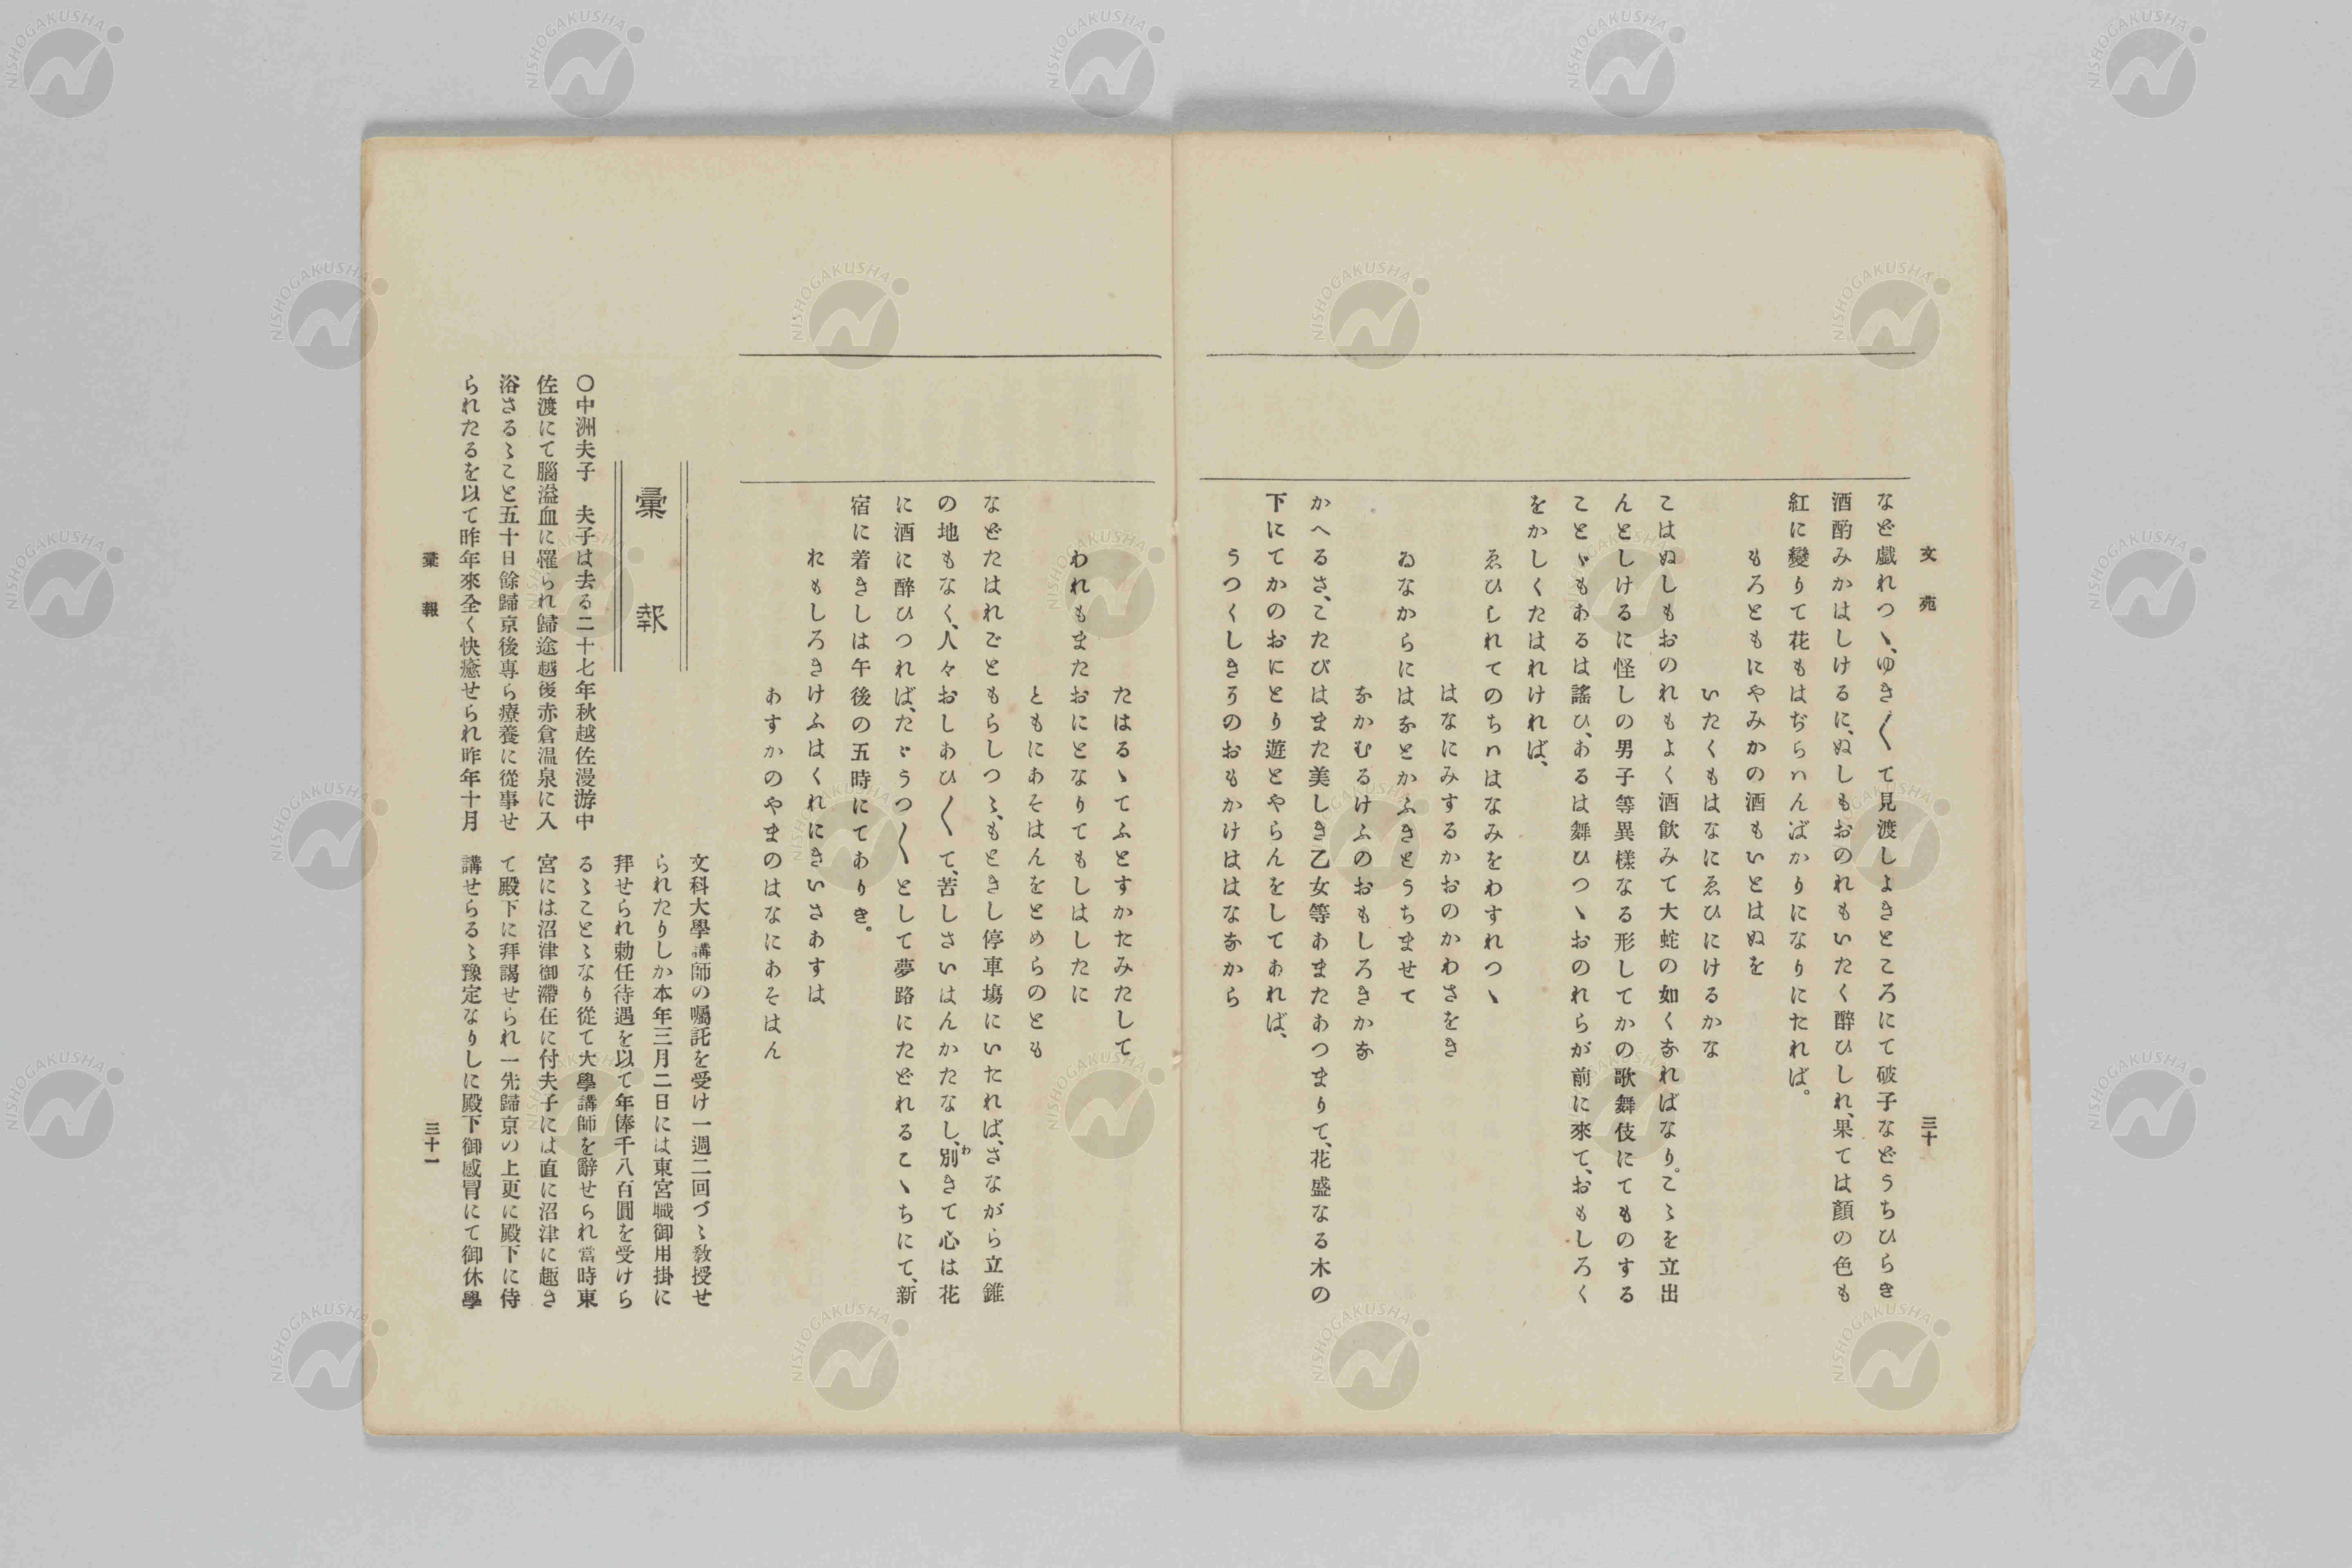 文苑
三十
など戯れつヽ、ゆき〱て見渡しよきところにて破子などうちひらき
酒酌みかはしけるに、ぬしもおのれもいたく醉ひしれ、果ては顏の色も
紅に變りて花もはぢらハんばかりになりにたれば。
もろともにやみかの酒もいとはぬを
いたくもはなにゑひにけるかな
こはぬしもおのれもよく酒飮みて大蛇の如くなればなり。こゝを立出
んとしけるに怪しの男子等異樣なる形してかの歌舞伎にてものする
ことヾもあるは謠ひ、あるは舞ひつヽおのれらが前に來て、おもしろく
をかしくたはれければ、
ゑひしれてのちハはなみをわすれつヽ
はなにみするかおのかわさをき
ゐなからにはなとかふきとうちませて
なかむるけふのおもしろきかな
かへるさ、こたびはまた美しき乙女等あまたあつまりて、花盛なる木の
下にてかのおにとり遊とやらんをしてあれば、
うつくしきうのおもかけははななから
たはるヽてふとすかたみたして
われもまたおにとなりてもしはしたに
ともにあそはんをとめらのとも
などたはれごともらしつゝ、もときし停車塲にいたれば、さながら立錐
の地もなく、人々おしあひ〱て、苦しさいはんかたなし、別きて心は花
わ
に酒に醉ひつれば、たゞうつ〱として夢路にたどれるこヽちにて、新
宿に着きしは午後の五時にてありき。
れもしろきけふはくれにきいさあすは
あすかのやまのはなにあそはん
彙報
〇中洲夫子　夫子は去る二十七年秋越佐漫游中
佐渡にて腦溢血に罹られ歸途越後赤倉温泉に入
浴さるゝこと五十日餘歸京後專ら療養に從事せ
られたるを以て昨年來全く快癒せられ昨年十月
文科大學講師の囑託を受け一週二回づゝ敎授せ
られたりしか本年三月二日には東宮職御用掛に
拜せられ勅任待遇を以て年俸千八百圓を受けら
るゝことゝなり從て大學講師を辭せられ當時東
宮には沼津御滯在に付夫子には直に沼津に趣き
て殿下に拜謁せられ一先歸京の上更に殿下に侍
講せらるゝ豫定なりしに殿下御感冒にて御休學
彙報
三十一
NISHOGAKUSHA